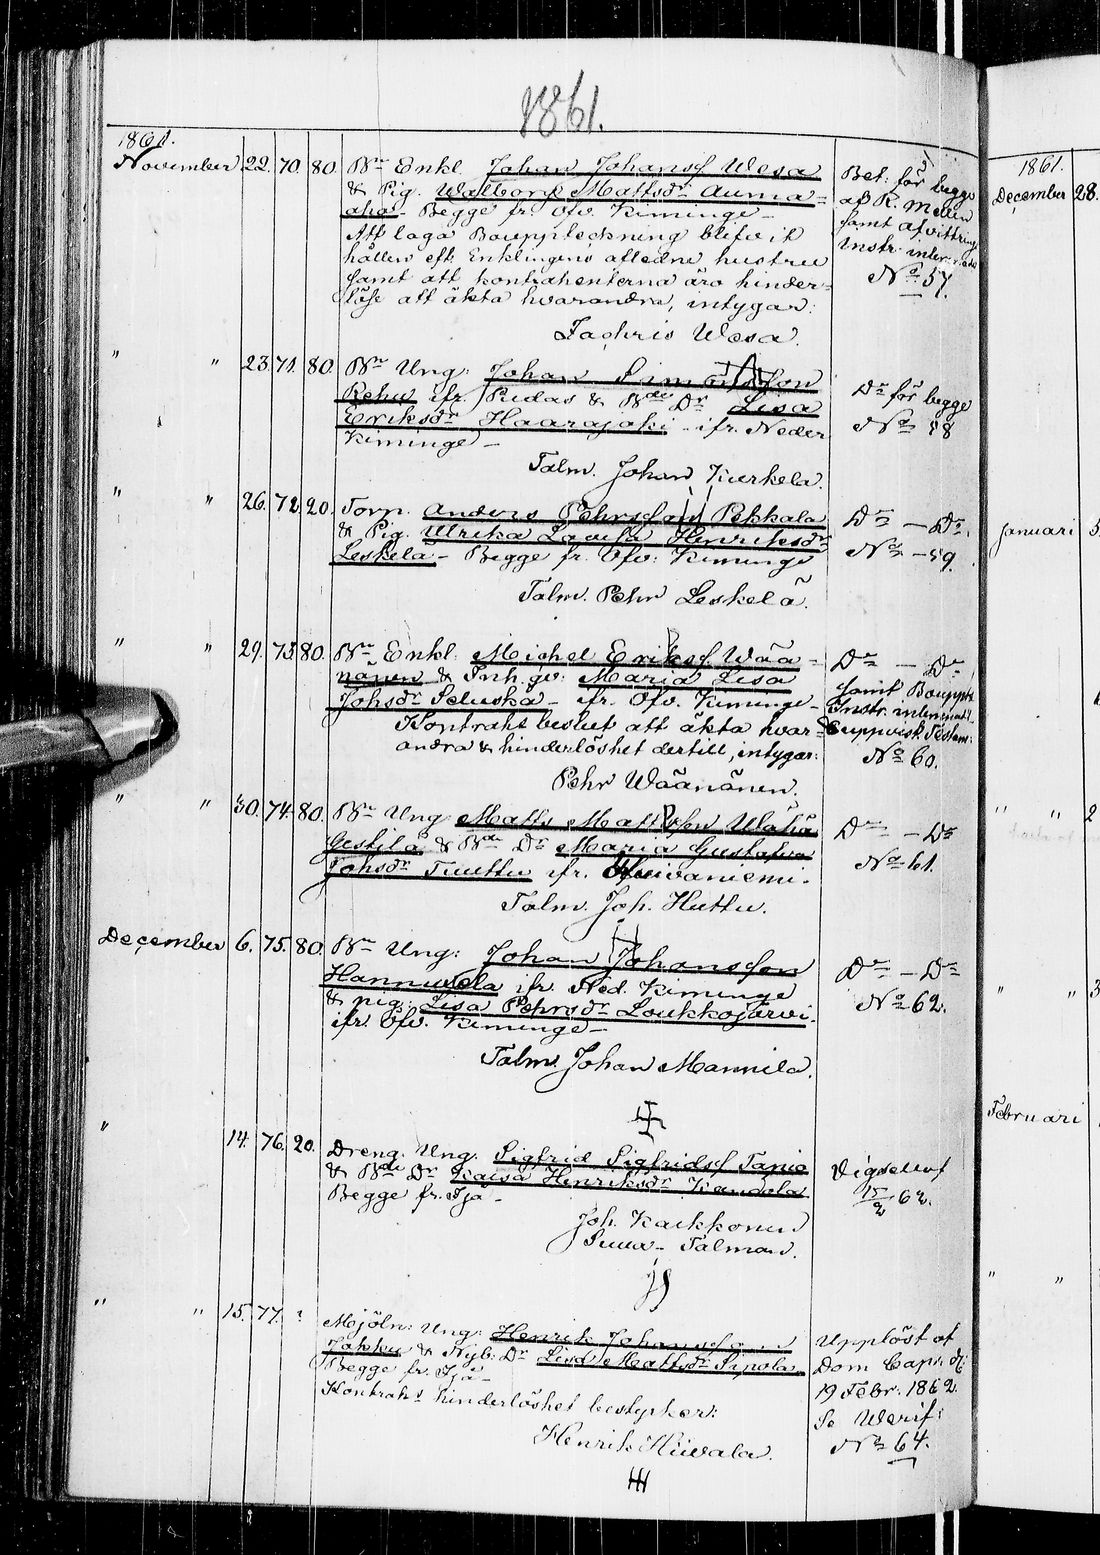 1861.
1861.
November 22. 70. 80. Bn Enkl. Johan Johansf Wesa
& Pig. Walborg Mattsdr Auma=
aho - Begge fr. Öfv. Kiminge -
Att laga Bouppteckning blifvit
hållen eft. Enklingens afledne hustru
samt att kontrahenterna äro hinder=
löse att äkta hvarandra, intygar:
Zachris Wesa.
Bet. för begge
af R. Mellin
samt Afvittrings
Instr.
No 57.
" " 23. 71. 80. Bn Ung: Johan Simonsson
Rehu ifr. Pudas & Bde Dr Lisa
Eriksdr Haarajoki - ifr. Neder
Kiminge -
Talm. Johan Kurkela.
Do för begge
No 58
" " 26. 72. 20. Torp. Anders Pehrsson Pekkala
& Pig. Ulrika Lovisa Henriksdr
Leskela - Begge fr. Öfv: Kiminge
Talm. Pehr Leskelä.
Do - Do.
No - 59.
" " 29. 73. 80. Bn Enkl: Michel Eriksf. Wää=
nänen & Inh. gv: Maria Lisa
Johsdr Seluska - ifr. Öfv. Kiminge -
Kontraht beslut att äkta hvar=
andra & hinderlöshet dertill, intygar:
Pehr Wäänänen.
Do - Do
samt Bouppt.
Instr.
No 60.
" " 30. 74. 80. Bn Ung Matts Mattson Ulaha
Gestilä & Bde Dr Maria Gustafva
Johsdr Tuuttu ifr. Haivaniemi.
Talm. Joh. Huttu.
Do - Do
No 61.
December 6. 75. 80. Bn Ung: Johan Johansson
Hannuxela ifr. Ned. Kiminge
& pig: Lisa Pehrsdr Loukkojärvi.
ifr. Öfv. Kiminge -
Talm. Johan Mannila.
Do - Do
No 62.
" 14. 76. 20. Dreng. Ung. Sigfrid Sigfridsf Tapio
& Bde Dr Kaisa Henriksdr Kandela
Begge fr. Ijä -
Joh. Kaikkonen
Talman.
Vigde
15/2 62.
" " 15. 77. Mjöln: Ung: Henrik Johansson
Jakku & Nyb: Dr Lisa Mattsdr Sipola
Begge fr. Ijä -
Kontrah: hinderlöshet bestyrker:
Henrik Hiivala.
Upplöst af
Dom Cap:
19 Febr: 1862
Se Verif:
No 64.
1861.
December 28.
Januari 5
" " 2
" " 3
Februari
" "